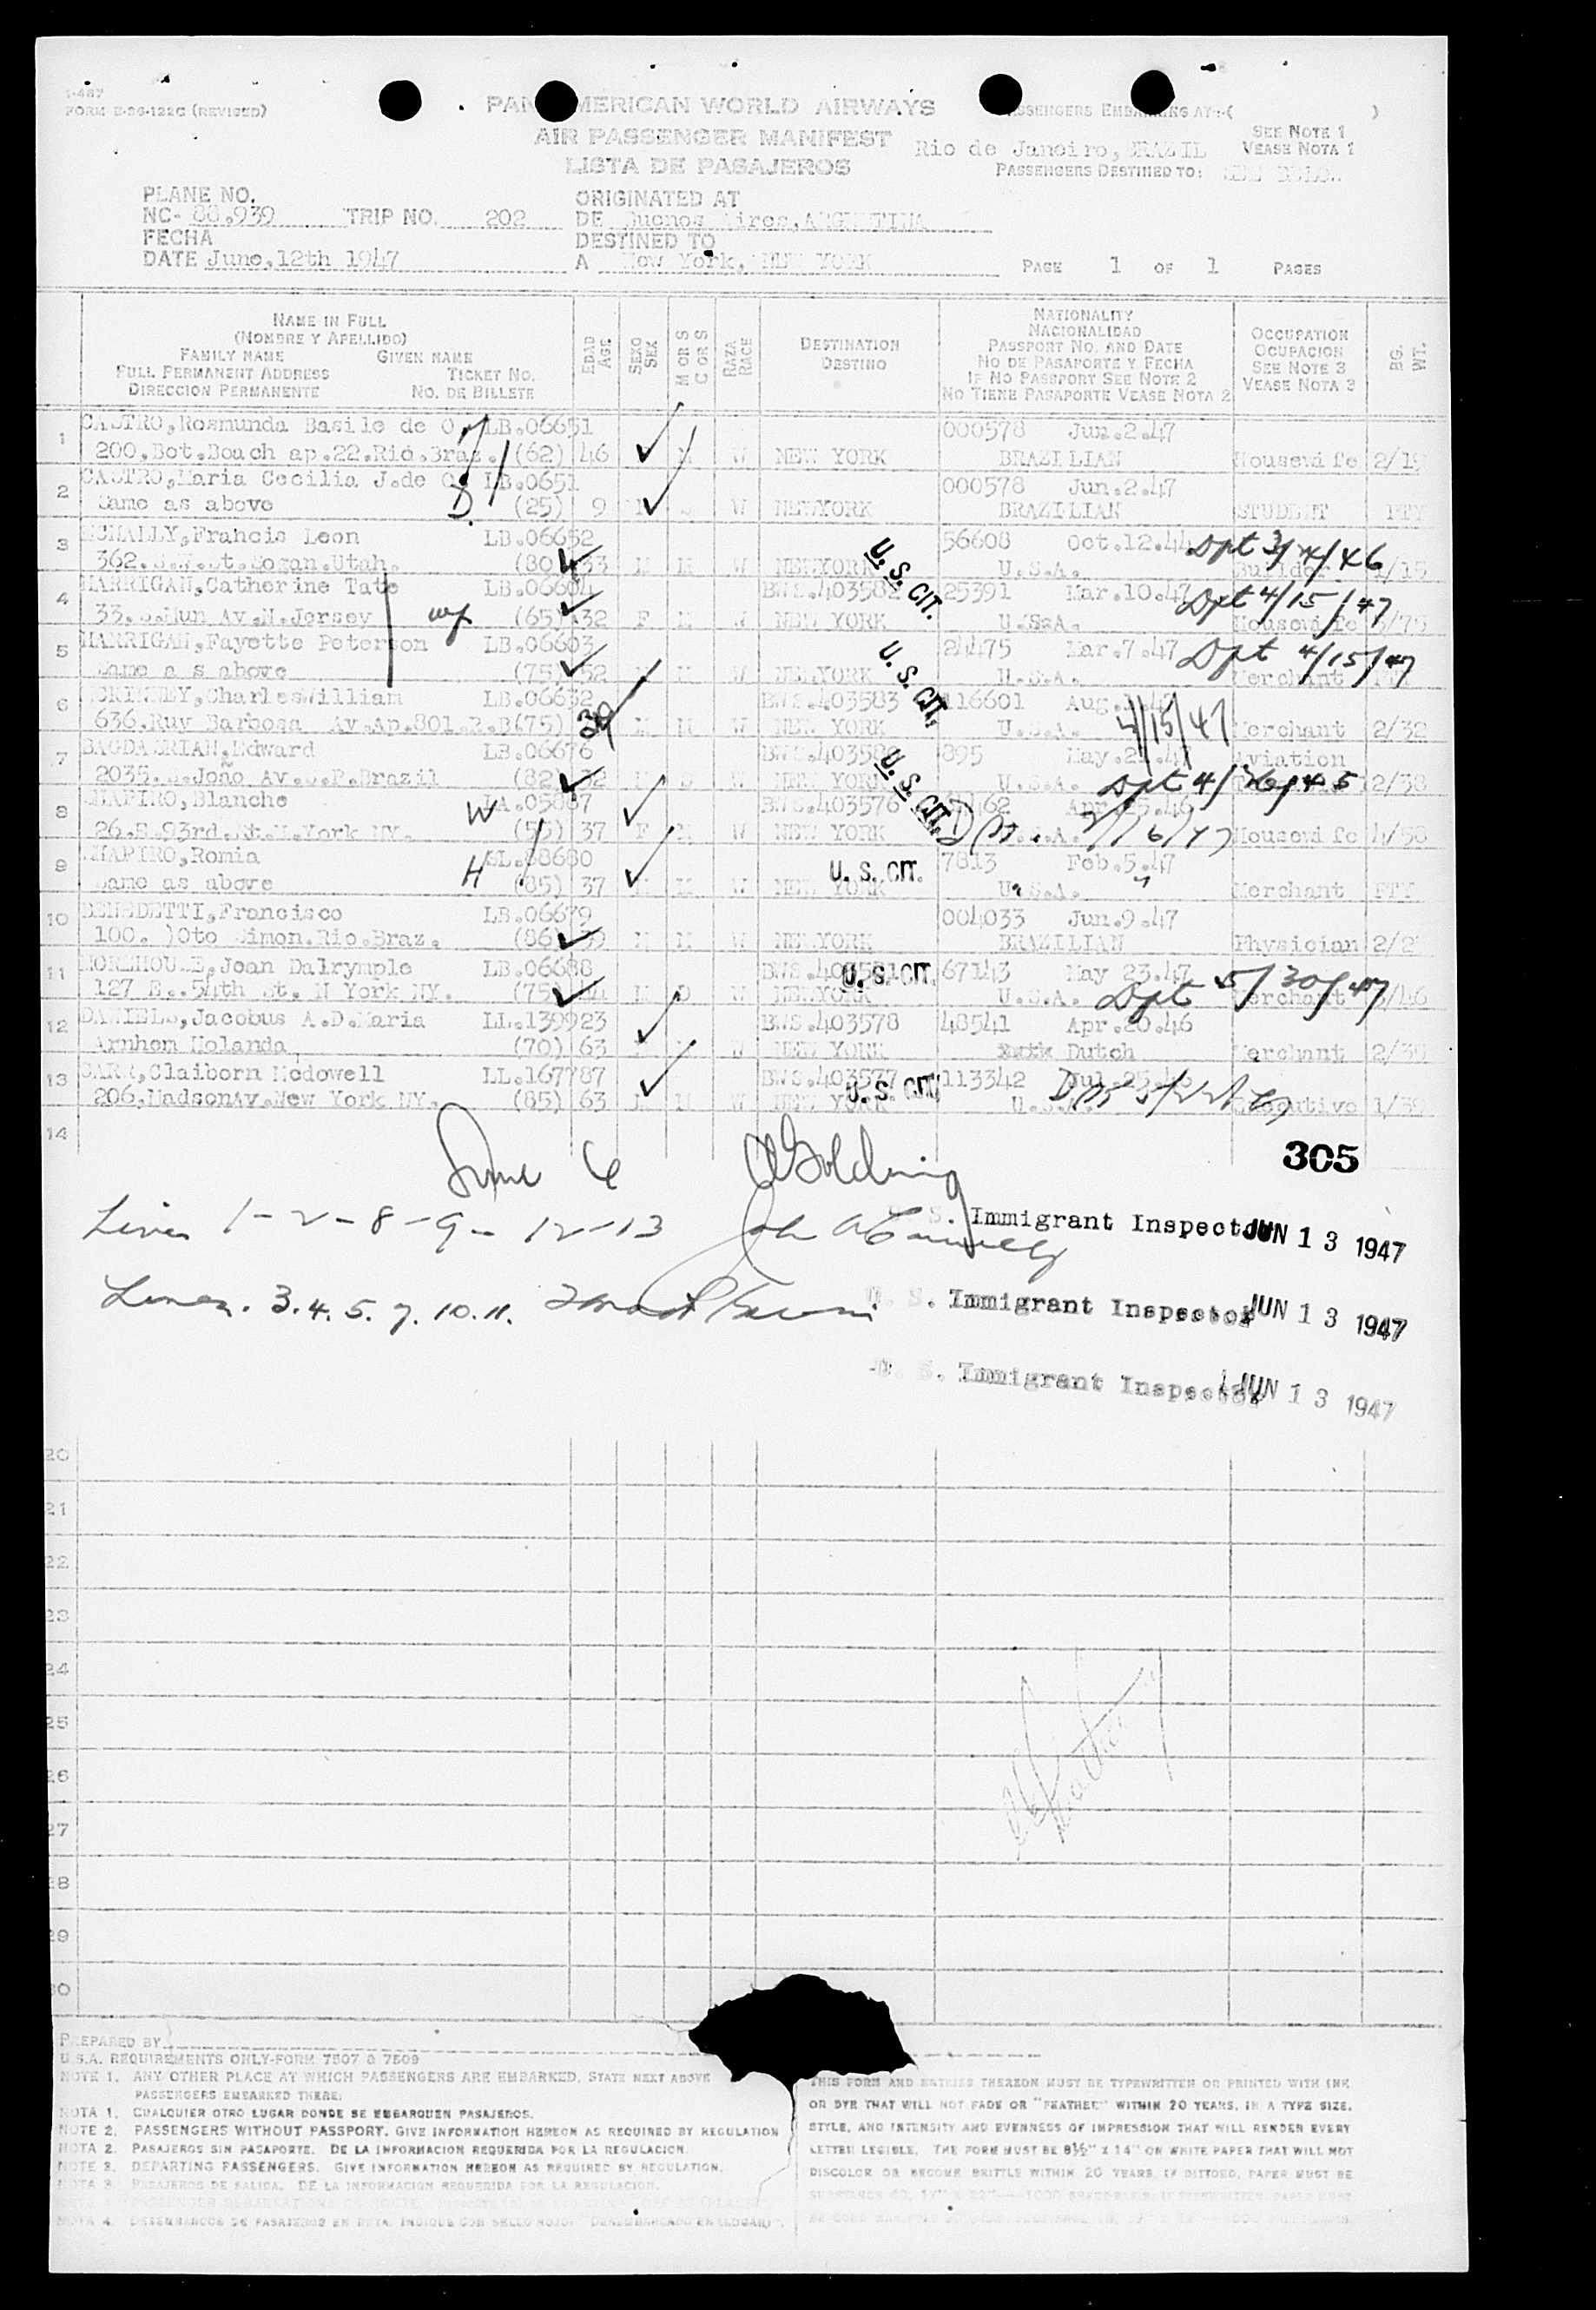 I-487
FORM E-36-122C (REVISED)
PAN AMERICAN WORLD AIRWAYS
AIR PASSENGER MANIFEST
LISTA DE PASAJEROS
PASSENGERS EMBARKING AT:-( )
SEE NOTE 1
VEASE NOTA 1
Rio de Janeiro, BRAZIL
PASSENGERS DESTINED TO:
PLANE NO.
NC- 88.939 TRIP NO. 202
FECHA
DATE June,12th 1947
ORIGINATED AT
DE Buenos Aires,ARGENTINA
DESTINED TO
A New York, NEW YORK
PAGE 1 OF 1 PAGES
NAME IN FULL
(NOMBRE Y APELLIDO)
FAMILY NAME GIVEN NAME
FULL PERMANENT ADDRESS TICKET NO.
DIRECCION PERMANENTE NO. DE BILLETE
EDAD AGE
SEXO SEX
M OR S C OR S
RAZA RACE
DESTINATION
DESTINO
NATIONALITY
NACIONALIDAD
PASSPORT NO. AND DATE
NO DE PASAPORTE Y FECHA
IF NO PASSPORT SEE NOTE 2
NO TIENE PASAPORTE VEASE NOTA 2
OCCUPATION
OCUPACION
SEE NOTE 3
VEASE NOTA 3
BG. WT.
1 CASTRO,Rosmunda Basile de O. LB.06651 000578 Jun.2.47
200.Bot.Beach ap.22.Rio.Braz. (62) 46 W NEW YORK BRAZILIAN Housewife
2 CASTRO,Maria Cecilia J.de O. LB.0651 000578 Jun.2.47
Same as above D. (25) 9 W NEWYORK BRAZILIAN STUDENT PTY
3 MCNALLY,Francis Leon LB.06652 56608 Oct.12.44 Dpt 3/4/46
362. Logan.Utah. (80) 33 M M W NEWYORK U.S.A. 1/15
U. S. CIT.
4 HARRIGAN,Catherine Tate LB.06604 BWS.403582 25391 Mar.10.47 Dpt 4/15/47
33.S.Mun Av.N.Jersey wf (65) 32 F M W NEW YORK U.S.A. Housewife
5 HARRIGAN,Fayette Peterson LB.06603 24475 Mar.7.47 Dpt 4/15/47
Same a s above (75) 52 M W NEWYORK U.S.A. Merchant PTY
U. S. CIT.
6 MCKINLEY,CharlesWilliam LB.06632 BWS.403583 116601 Aug.
636.Ruy Barbosa Av.Ap.801.R.B(75) 39 M M W NEW YORK U.S.A. 4/15/47 Merchant 2/32
7 BAGDASRIAN,Edward LB.06676 895 Aviation
2035.S.João Av.S.P.Brazil (82) 32 S W NEW YORK U.S.A. Dpt 4/26/45 2/38
U. S. CIT.
8 SHAPIRO,Blanche W BWS.403576
26.E.93rd.St.N.York NY. (55) 37 F M W NEW YORK Housewife 4/58
9 SHAPIRO,Romia 7813 Feb.5.47
Same as above H (85) 37 M W NEW YORK U. S. CIT. U.S.A. Merchant PTY
10 BENEDETTI,Francisco LB.06679 004033 Jun.9.47
100. Oto Simon.Rio.Braz. (86) M M W NEWYORK BRAZILIAN Physician
11 MOREHOUSE,Jean Dalrymple LB.06688 U. S. CIT. 67143 May 23.47
127 E..54th St. N York NY. (75) D W NEWYORK U.S.A. Dpt 5/30/47
12 DANIELS,Jacobus A.D.Maria LL.139923 BWS.403578 48541 Apr.20.46
Arnhem Holanda (70) 63 W NEW YORK Dutch Merchant
13 CARR,Claiborn Mcdowell LL.167787 BWS.403577 113342
206.MadsonAv.New York NY. (85) 63 M W NEW YORK U. S. CIT. U.S.A. Executive 1/39
14
305
Line 6
Lines 1-2-8-9-12-13 U. S. Immigrant Inspector JUN 13 1947
Lines. 3.4.5.7.10.11. U. S. Immigrant Inspector JUN 13 1947
U. S. Immigrant Inspector JUN 13 1947
20
21
22
23
24
25
26
27
28
29
30
PREPARED BY
U.S.A. REQUIREMENTS ONLY-FORM 7507 & 7509
NOTE 1. ANY OTHER PLACE AT WHICH PASSENGERS ARE EMBARKED, STATE NEXT ABOVE
PASSENGERS EMBARKED THERE:
NOTA 1. CUALQUIER OTRO LUGAR DONDE SE EMBARQUEN PASAJEROS.
NOTE 2. PASSENGERS WITHOUT PASSPORT. GIVE INFORMATION HEREON AS REQUIRED BY REGULATION
NOTA 2. PASAJEROS SIN PASAPORTE. DE LA INFORMACION REQUERIDA POR LA REGULACION.
NOTE 3. DEPARTING PASSENGERS. GIVE INFORMATION HEREON AS REQUIRED BY REGULATION.
NOTA 3. PASAJEROS DE SALIDA. DE LA INFORMACION REQUERIDA POR LA REGULACION.
NOTA 4. DESEMBARCOS DE PASAJEROS EN RUTA. INDIQUE CON SELLO ROJO: "DESEMBARCADO EN (LUGAR)".
THIS FORM AND ENTRIES THEREON MUST BE TYPEWRITTEN OR PRINTED WITH INK
OR DYE THAT WILL NOT FADE OR "FEATHER" WITHIN 20 YEARS, IN A TYPE SIZE,
STYLE, AND INTENSITY AND EVENNESS OF IMPRESSION THAT WILL RENDER EVERY
LETTER LEGIBLE. THE FORM MUST BE 8½" X 14" ON WHITE PAPER THAT WILL NOT
DISCOLOR OR BECOME BRITTLE WITHIN 20 YEARS. IF DITTOED, PAPER MUST BE